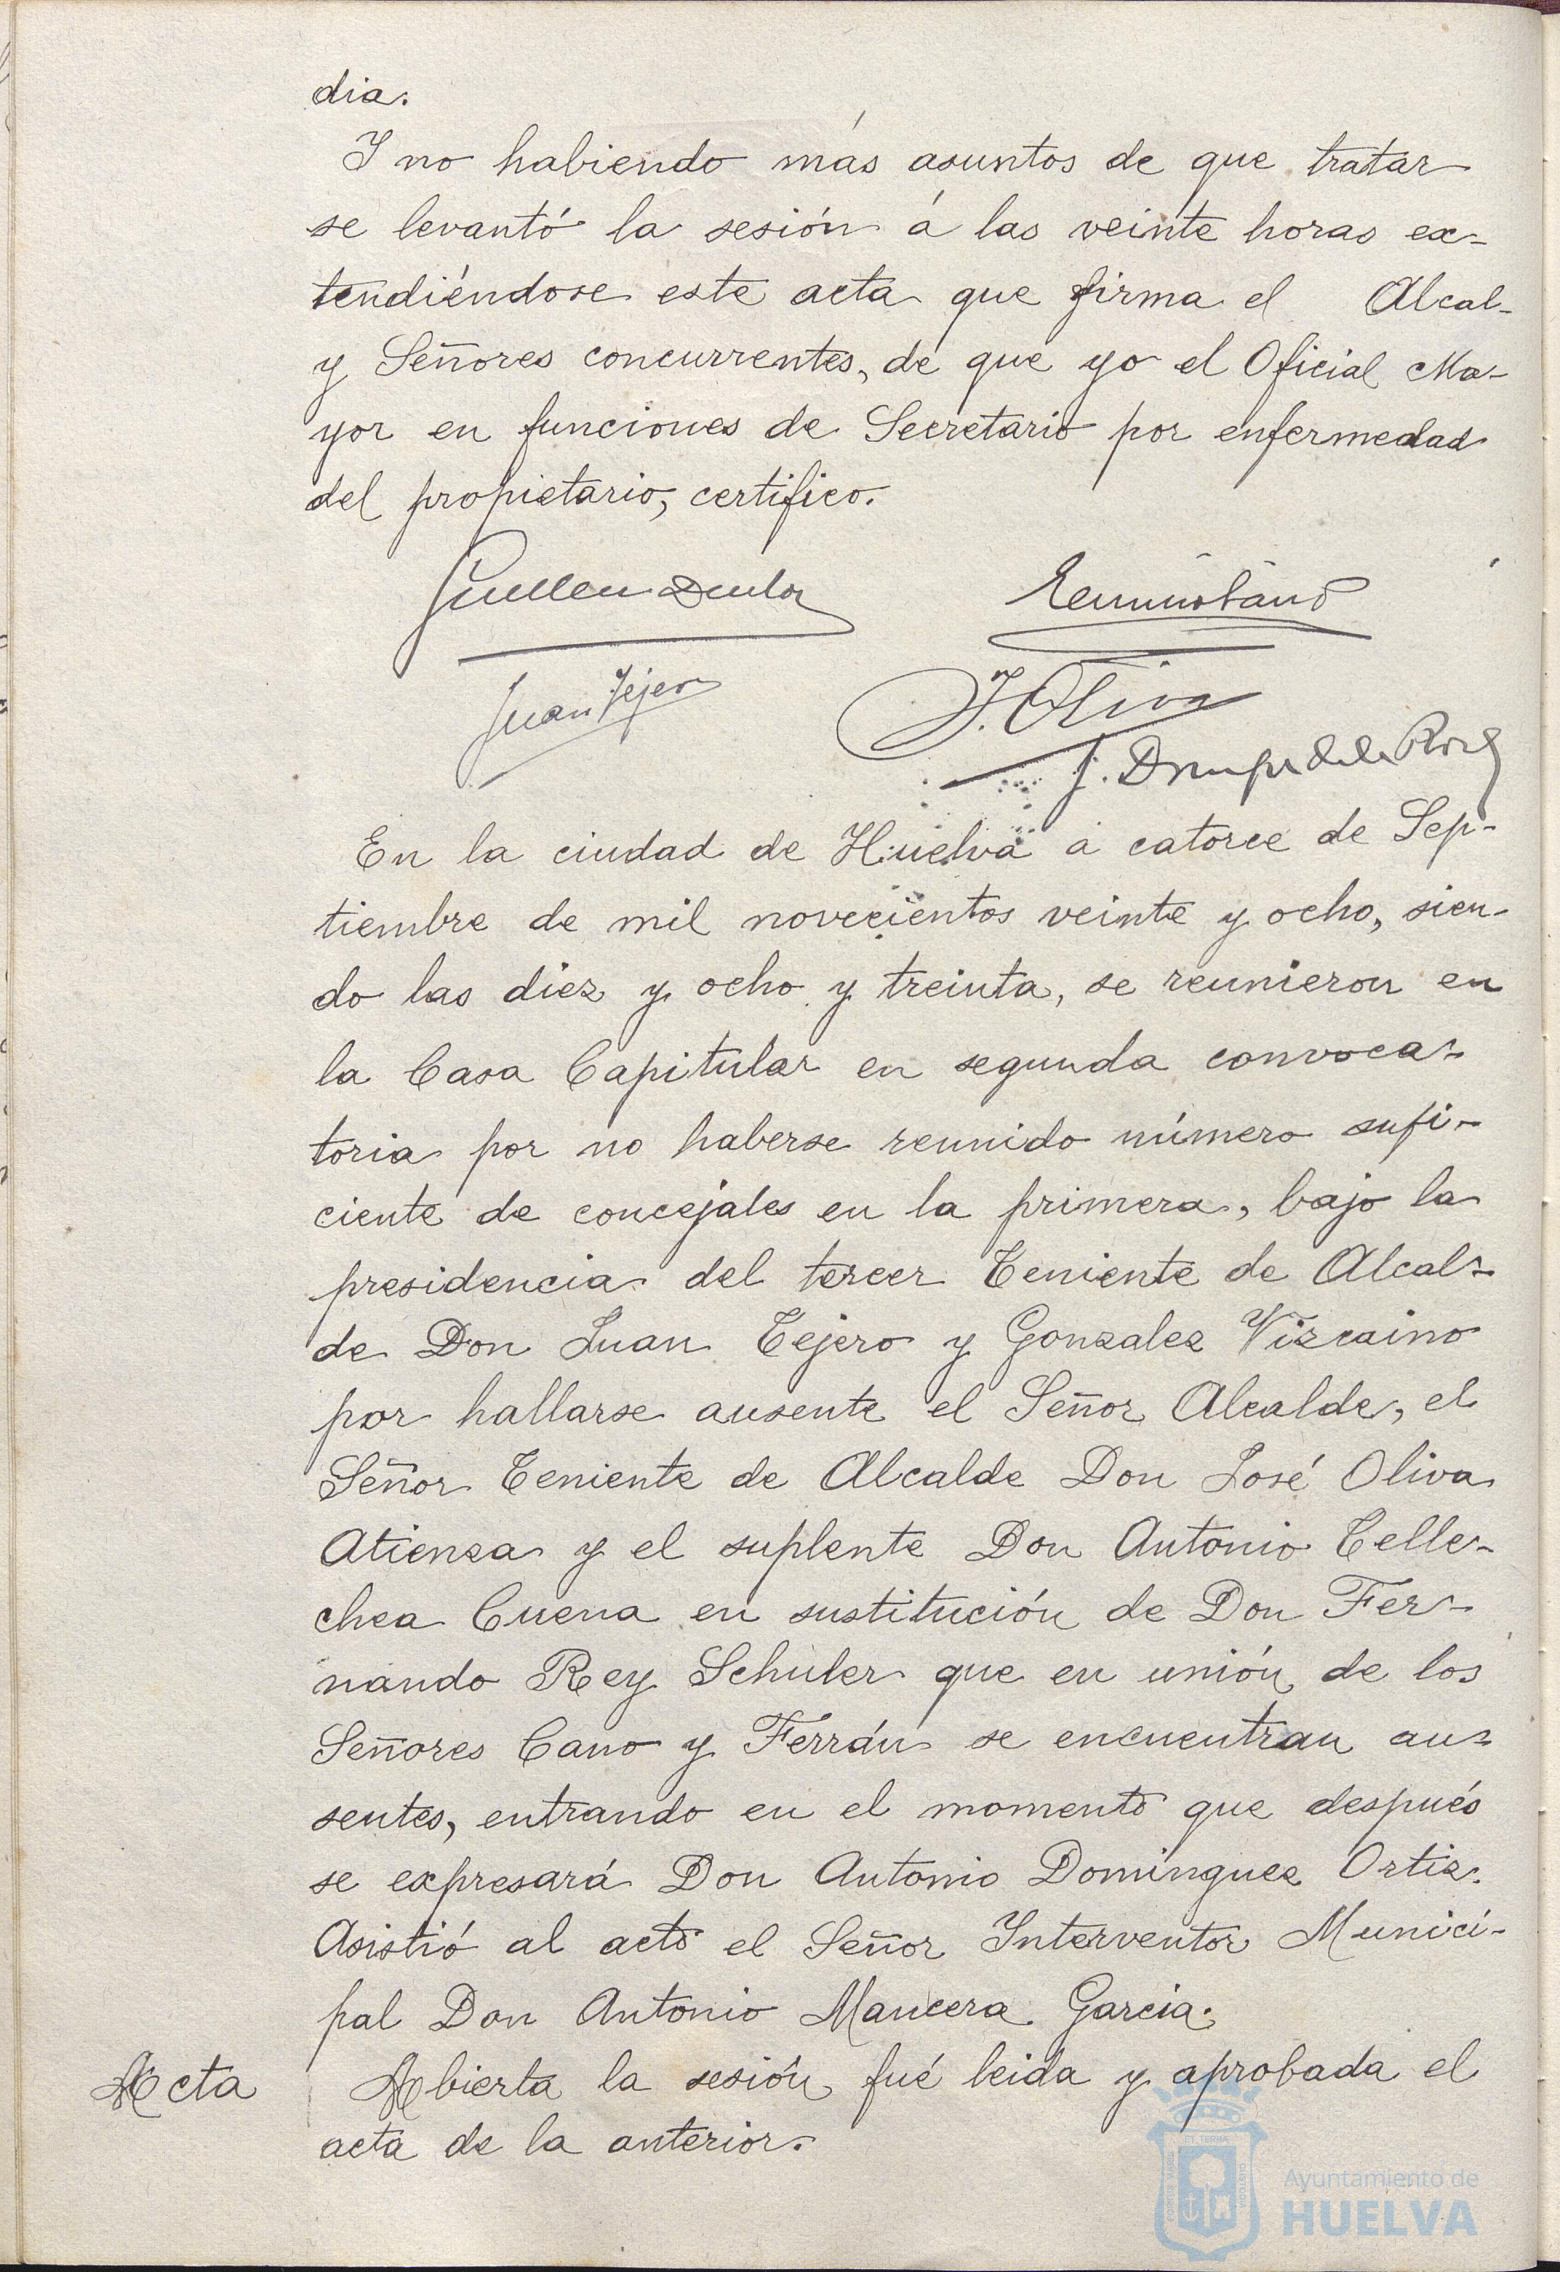 dia.
Y no habiendo más asuntos de que tratar
se levantó la sesión á las veinte horas ex-
tendiéndose este acta que firma el Alcal-
y Señores concurrentes, de que yo el Oficial Ma-
yor en funciones de Secretario por enfermedad
del propietario, certifico.
Juan Tejero
J. Oliva
J. de la
En la ciudad de Huelva a catorce de Sep-
tiembre de mil novecientos veinte y ocho, sien-
do las diez y ocho y treinta, se reunieron en
la Casa Capitular en segunda convoca-
toria por no haberse reunido número sufi-
ciente de concejales en la primera, bajo la
presidencia del tercer Teniente de Alcal-
de Don Juan Tejero y Gonzalez Vizcaino
por hallarse ausente el Señor Alcalde, el
Señor Teniente de Alcalde Don José Oliva
Atienza y el suplente Don Antonio Telle-
chea Cuena en sustitución de Don Fer-
nando Rey Schuler que en unión de los
Señores Cano y Ferrán se encuentran au-
sentes, entrando en el momento que después
se expresará Don Antonio Dominguez Ortiz.
Asistió al acto el Señor Interventor Munici-
pal Don Antonio Mancera Garcia.
Acta
Abierta la sesión fué leida y aprobada el
acta de la anterior.
Ayuntamiento de
HUELVA